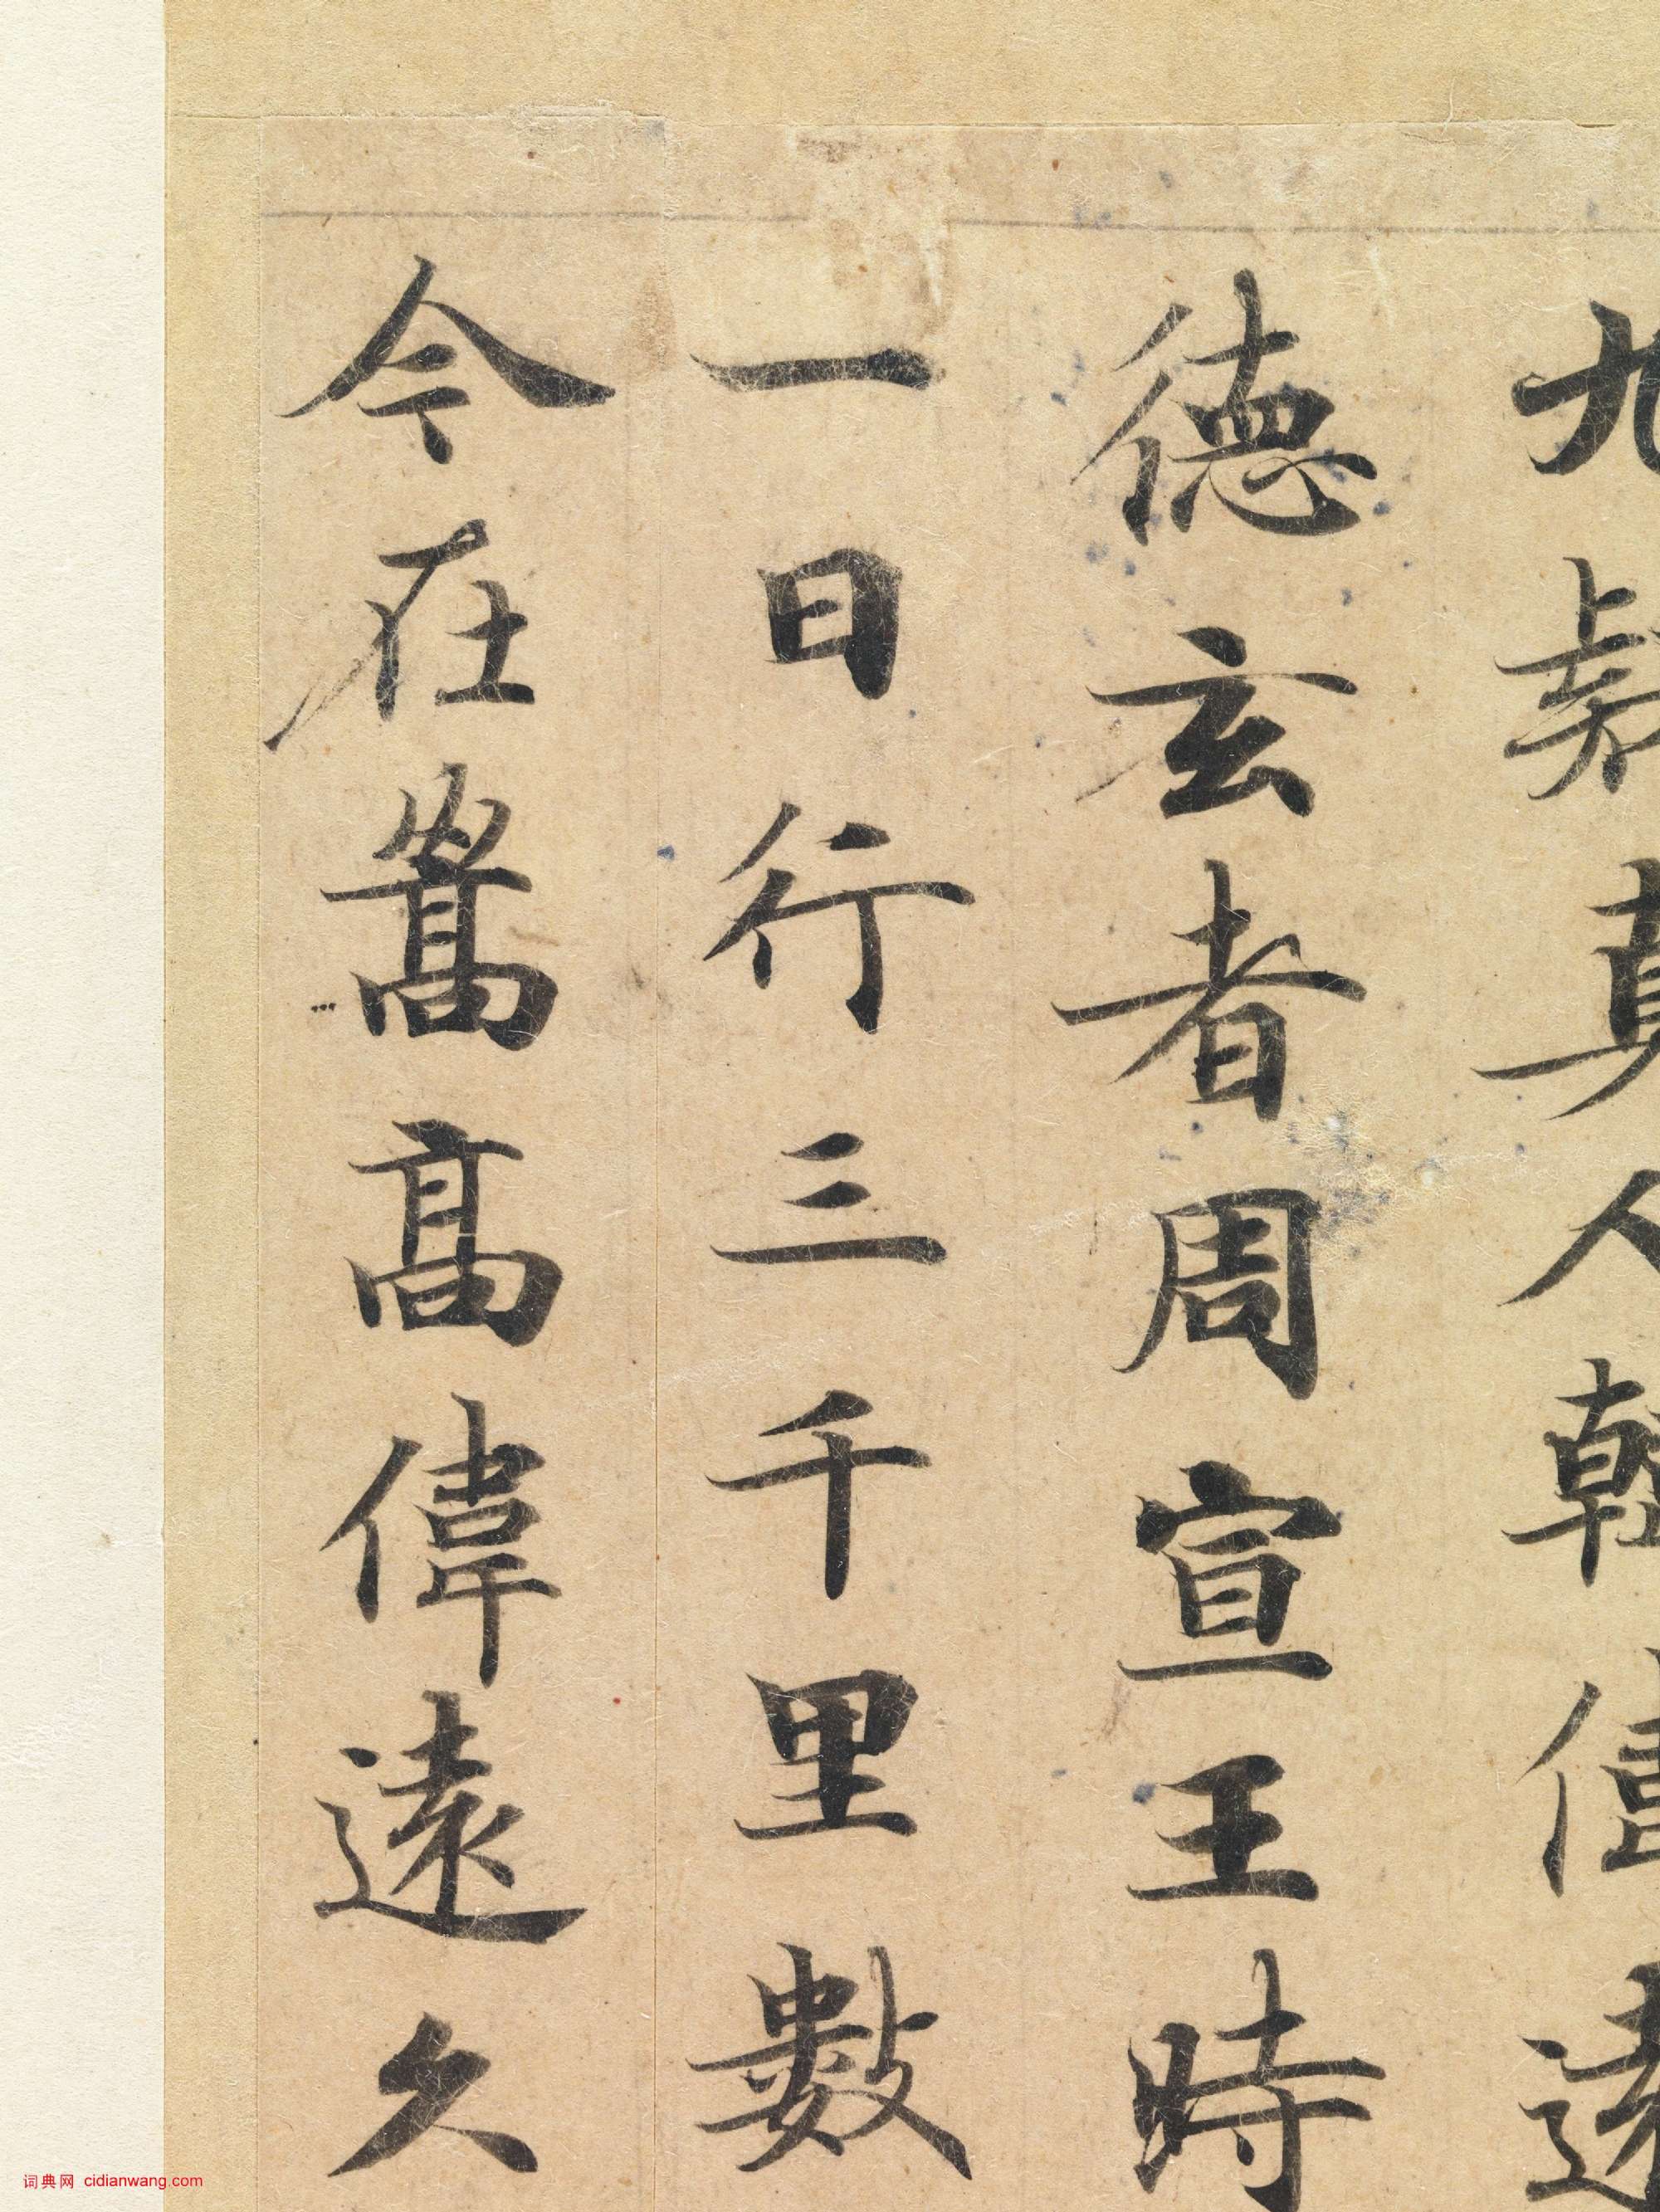 九疑真人韓偉遠
德玄者周宣王時
一日行三千里數
今在嵩高偉遠久
词典网 cidianwang.com